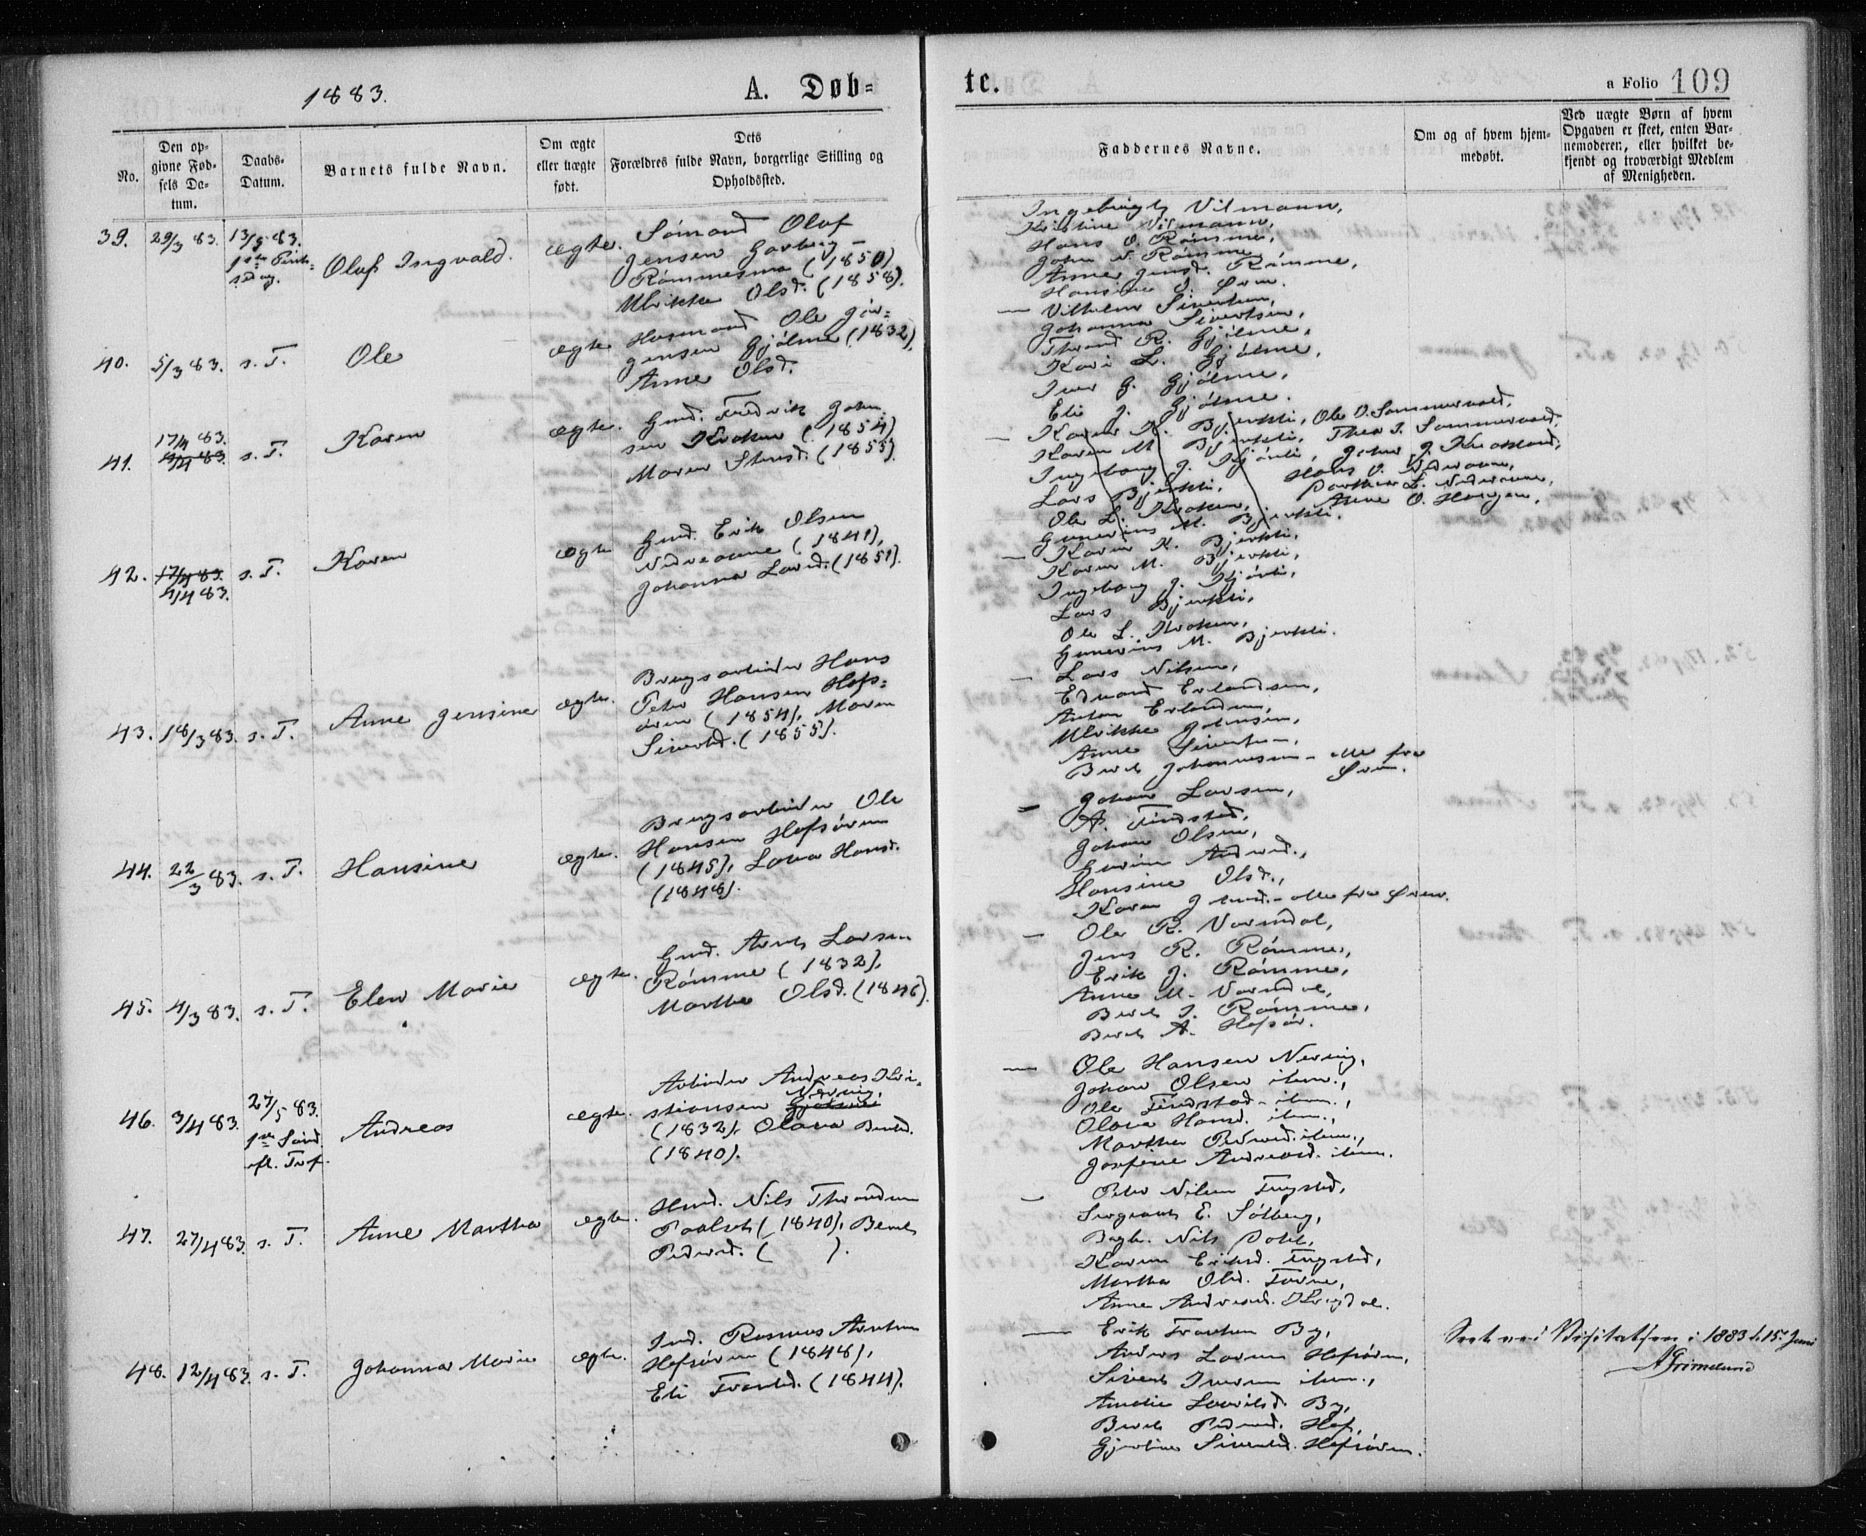 1883.
A. Døb=
te.
a Folio 109
No.
Den op-
givne Fød-
sels Da-
tum.
Daabs-
Datum.
Barnets fulde Navn.
Om ægte
eller uægte
født.
Dets
Forældres fulde Navn, borgerlige Stilling og
Opholdssted.
Faddernes Navne.
Om og af hvem hjem-
medøbt.
Ved uægte Børn af hvem
Opgaven er skeet, enten Bar-
nemoderen, eller hvilket be-
kjendt og troværdigt Medlem
af Menigheden.
39. 29/3 83. 13/5 83.
1ste Pintse-
dag.
Olaf Ingvald.
ægte.
Sømand Olaf
Jensen Garberg -
Rømmesmo (1850)
Ulrikke Olsd. (1858).
Ingebrigt Vilmann,
Kristine Vilmann,
Hans O. Rømme,
John N. Rømme,
Anne Jensd. Rømme,
Hansine O. Øren.
40. 5/3 83. s. T. Ole
ægte
Husmand Ole Jør=
gensen Gjølme (1832),
Anne Olsd.
— Vilhelm Sivertsen,
Johanna Sivertsen,
Thrond R. Gjølme,
Kari L. Gjølme,
Iver G. Gjølme,
Eli J. Gjølme.
17/4 83.
41. 4/4 83. s. T. Karen
ægte.
Gmd. Fredrik John
sen Kroken (1854)
Maren Stensd. (1855).
— Karen K. Bjerkli, Ole O. Sommervold,
Karen M. Bjerkli, Thea I. Sommervold,
Ingeborg J. Kjønli, John J. Kroken,
Lars Bjerkli, Hans O. Nedreaune,
Ole L. Kroken, Marthe L. Nedreaune,
Gunerius M. Bjerkli. Anne O. Haugen,
42. 17/4 83. s. T. Karen
4/4 83.
ægte
Gmd. Erik Olsen
Nedreaune (1841),
Johanna Larsd. (1851).
— Karen K. Bjerkli,
Karen M. Bjerkli,
Ingeborg J. Kjønli,
Lars Bjerkli,
Ole L. Kroken,
Gunerius M. Bjerkli.
43. 18/3 83. s. T. Anne Jensine
ægte.
Brugsarbeider Hans
Peter Hansen Hofs=
øren (1854), Maren
Sivertsd. (1855).
— Lars Nilsen,
Edvard Erlandsen,
Anton Erlandsen,
Ulrikke Johnsen,
Anne Sivertsen,
Berit Johannesen - alle fra
Øren.
44. 22/3 83. s. T. Hansine
ægte.
Brugsarbeider Ole
Hansen Hofsøren
(1845), Lava Hansd.
(1848).
— Johan Larsen,
A. Findstad,
Johan Olsen,
Gurine Andersd.,
Hansine Olsd.,
Karen Jensd. - alle fra Øren.
45. 4/3 83. s. T. Elen Marie
ægte.
Gmd. Arnt Larsen
Rømme (1832),
Marthe Olsd. (1846).
— Ole R. Vormdal,
Jens R. Rømme,
Erik J. Rømme,
Anne M. Vormdal,
Berit I. Rømme,
Berit A. Hofsør.
46. 3/4 83. 27/5 83.
1ste Sønd.
eft. Tref.
Andreas
ægte.
Arbeider Andreas Kri-
Nering,
stiansen Gjølme
(1832), Olava Bentsd.
(1840).
— Ole Hansen Nering,
Johan Olsen item.,
Ole Findstad - item.,
Olava Hansd. item.,
Marthe Pedersd. item.,
Josefine Andreasd. item.
47. 27/4 83. s. T. Anne Martha
ægte.
Hmd. Nils Throndsen
(1840), Berit
Pedersd. ( ).
— Peter Nilsen
Sergeant E. Sølberg,
Nils
Karen Eriksd.
Martha Olsd.
Anne Andersd.
48. 12/4 83. s. T. Johanna Marie
ægte.
Ind. Rasmus Arntsen
Hofsøren (1848),
Eli Frantsd. (1844).
— Erik Frantsen By,
Anders Larsen Hofsøren,
Sivert Iversen item.,
Amalie Lauritsd. By,
Berit Pedersd. Hof,
Gjertine Sivertsd. Hofsøren.
Seet ved Visitatsen i 1883 d. 15de Juni
AGrimelund